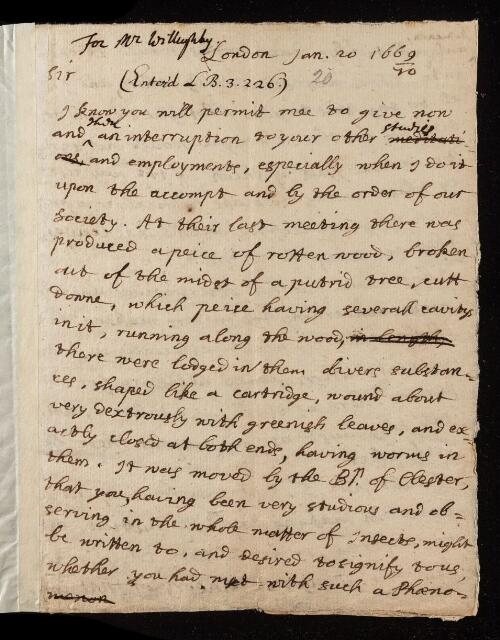 For Mr Willughby
London Jan. 20 1669/70
Sir
(Enterd LB. 3. 226.) 20
I know you will permit mee to give now
and then an interruption to your other studies meditati
ons, and employments, especially when I do it
upon the accompt and by the order of our
Society. At their last meeting there was
produced a peice of rotten wood, broken
out of the midst of a putrid tree, cutt
donne, which peice having severall cavitys
in it, running along the wood, in length,
there were lodged in them divers substan=
ces, shaped like a cartridge, wound about
very dextrously with greenish leaves, and ex=
actly closed at both ends, having worms in
them. It was moved by the Bp. of Chester,
that you, having been very studious and ob=
serving in the whole matter of Insects, might
be written to, and desired to signify to us,
whether you had met with such a Phæno=
menon